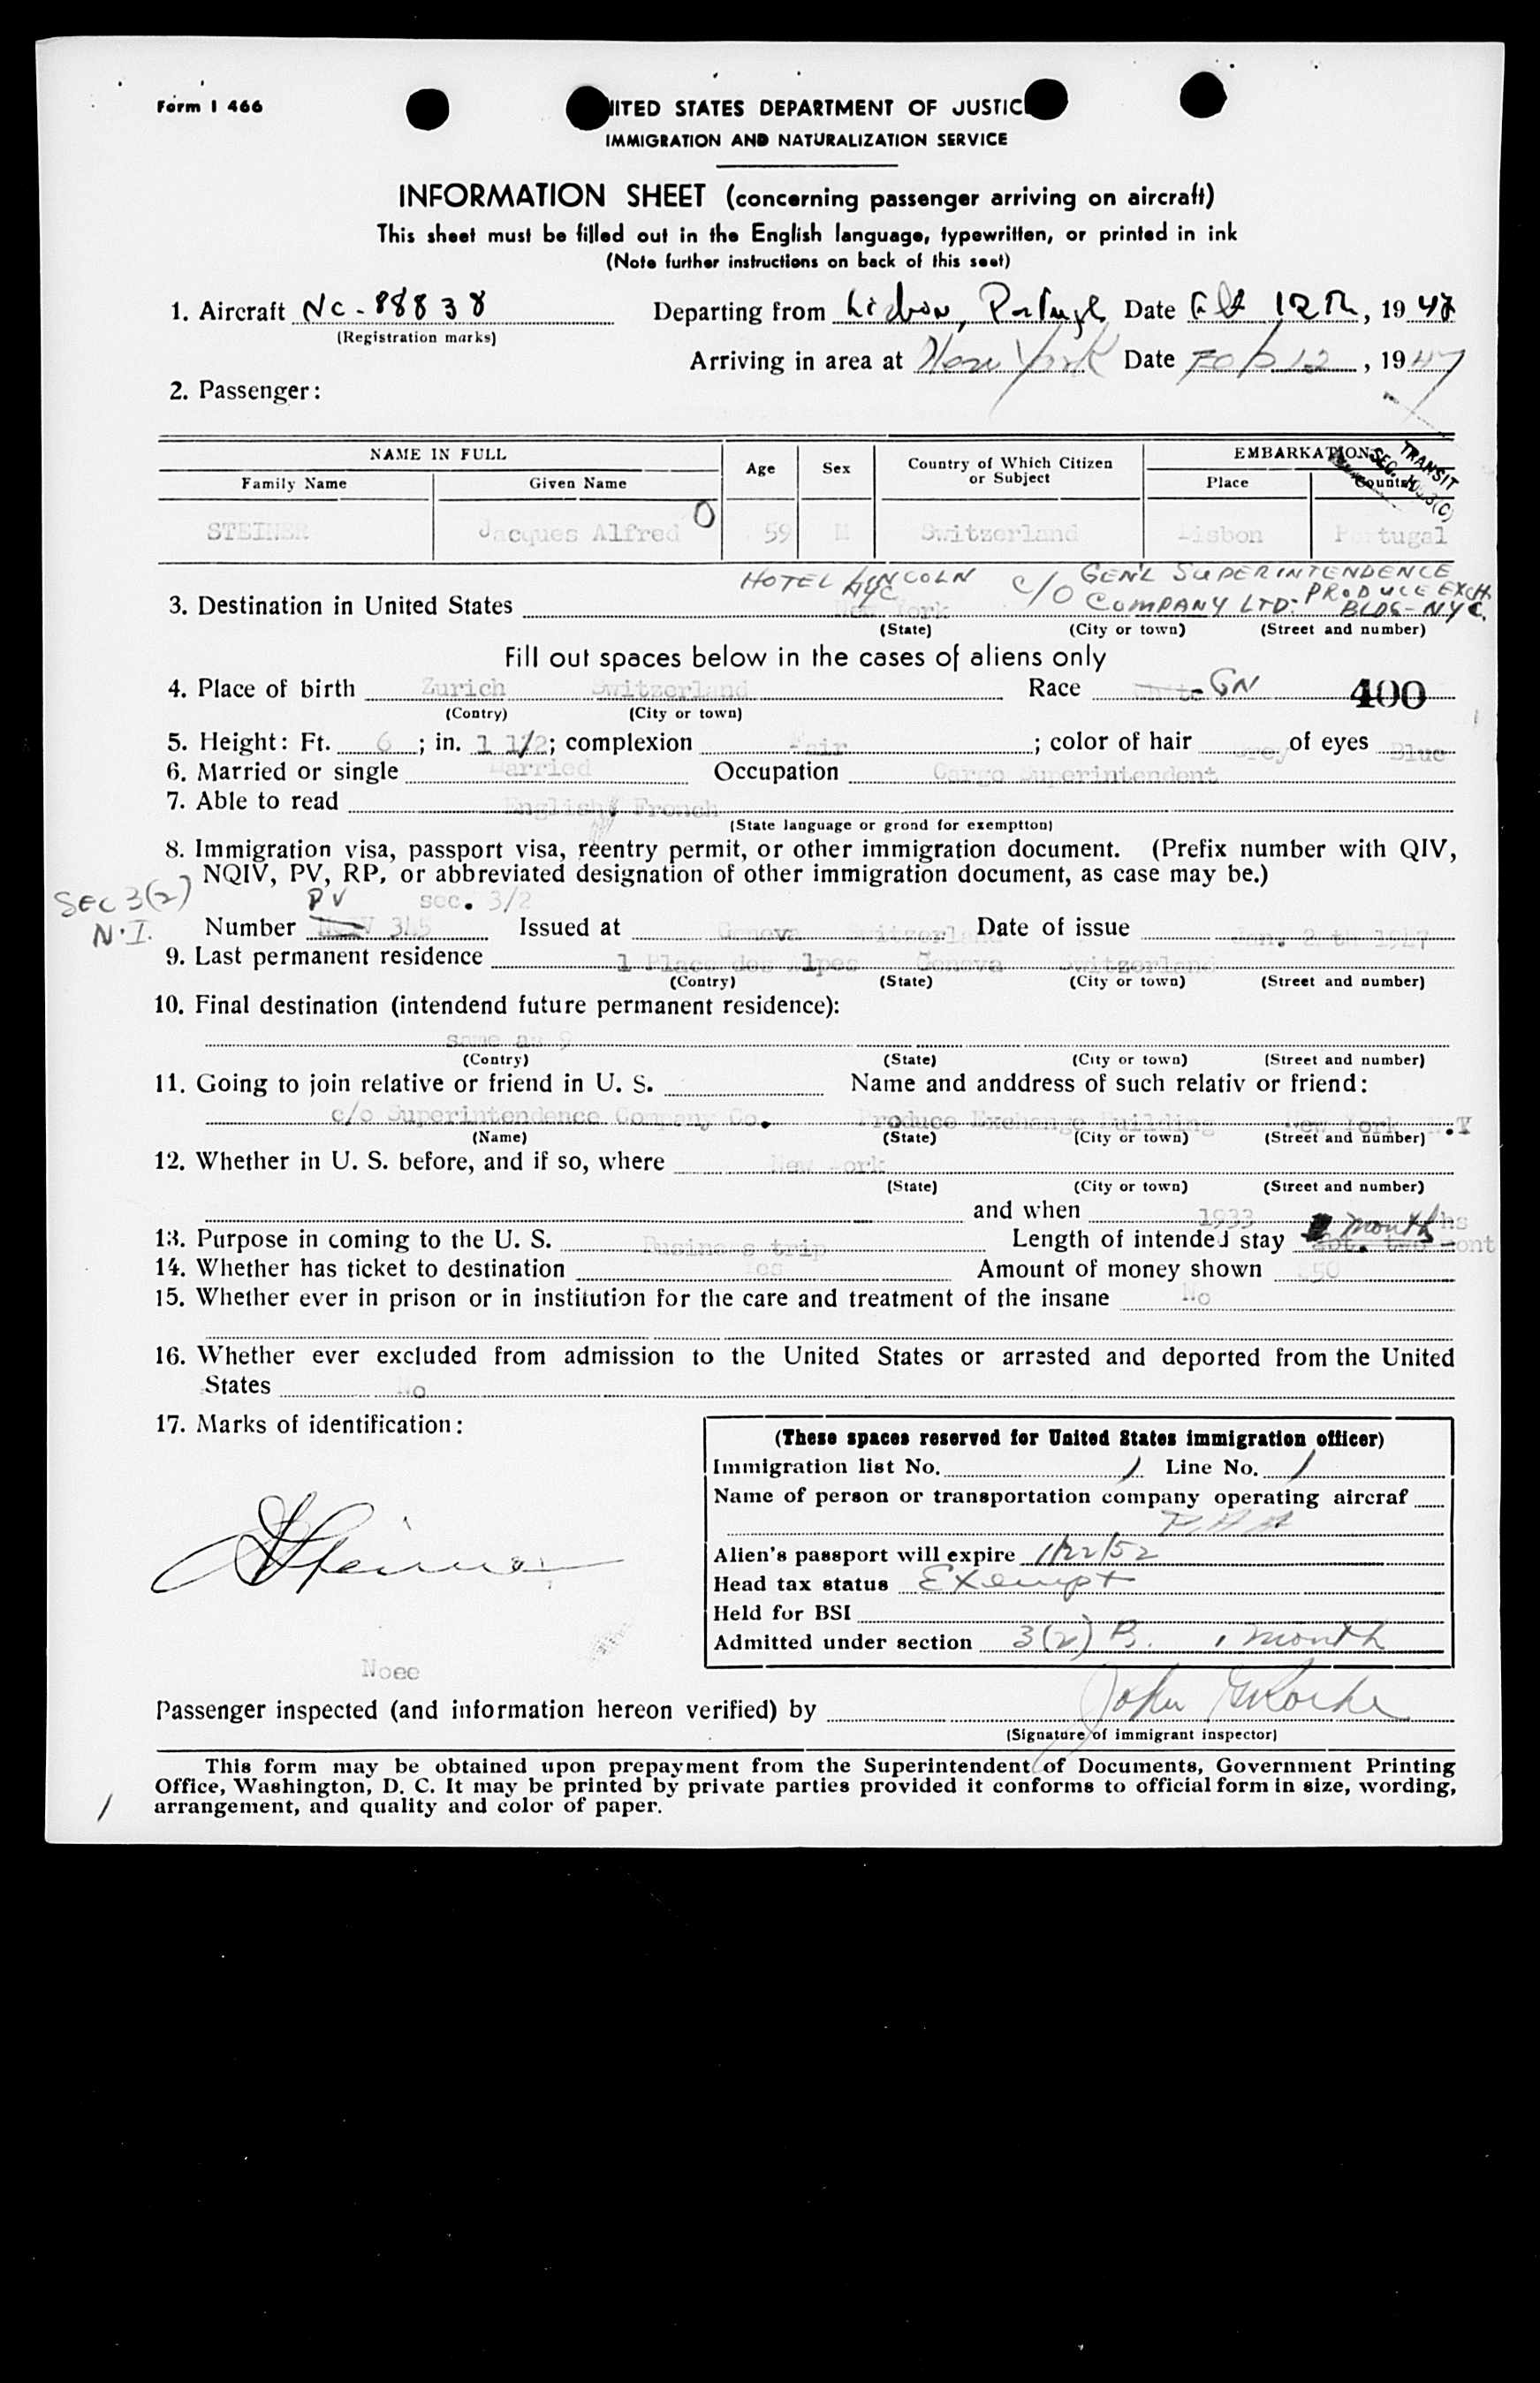 Form I 466
UNITED STATES DEPARTMENT OF JUSTICE
IMMIGRATION AND NATURALIZATION SERVICE
INFORMATION SHEET (concerning passenger arriving on aircraft)
This sheet must be filled out in the English language, typewritten, or printed in ink
(Note further instructions on back of this seet)
1. Aircraft NC-88838 Departing from Lisbon, Portugal Date Feb 12th, 1947
(Registration marks)
Arriving in area at New York Date Feb 12, 1947
2. Passenger:
NAME IN FULL Age Sex Country of Which Citizen or Subject EMBARKATION
Family Name Given Name Place Country
TRANSIT
SEC. 3(C)
STEINER Jacques Alfred O 59 M Switzerland Lisbon Portugal
HOTEL LINCOLN NYC c/o GEN'L SUPERINTENDENCE
3. Destination in United States New York COMPANY LTD. PRODUCE EXCH. BLDG-NYC.
(State) (City or town) (Street and number)
Fill out spaces below in the cases of aliens only
4. Place of birth Zurich Switzerland Race White GN 400
(Contry) (City or town)
5. Height: Ft. 6; in. 1 1/2; complexion Fair; color of hair Grey of eyes Blue
6. Married or single Married Occupation Cargo Superintendent
7. Able to read English, French
(State language or grond for exemptton)
8. Immigration visa, passport visa, reentry permit, or other immigration document. (Prefix number with QIV,
NQIV, PV, RP, or abbreviated designation of other immigration document, as case may be.)
SEC 3(2)
N.I.
PV sec. 3/2
Number 345 Issued at Geneva Switzerland Date of issue Jan. 2 th 1947
9. Last permanent residence 1 Place des Alpes Geneva Switzerland
(Contry) (State) (City or town) (Street and number)
10. Final destination (intendend future permanent residence):
same as 9
(Contry) (State) (City or town) (Street and number)
11. Going to join relative or friend in U. S. Name and anddress of such relativ or friend:
c/o Superintendence Company Co. Produce Exchange Building New York N.Y
(Name) (State) (City or town) (Street and number)
12. Whether in U. S. before, and if so, where New York
(State) (City or town) (Street and number)
and when 1933
13. Purpose in coming to the U. S. Business trip Length of intended stay abt. two months month
14. Whether has ticket to destination Yes Amount of money shown $50
15. Whether ever in prison or in institution for the care and treatment of the insane No
16. Whether ever excluded from admission to the United States or arrested and deported from the United
States No
17. Marks of identification:
(These spaces reserved for United States immigration officer)
Immigration list No. 1 Line No. 1
Name of person or transportation company operating aircraf
PAA
Alien's passport will expire 1/22/52
Head tax status Exempt
Held for BSI
Admitted under section 3(2) B. 1 month
JSteiner
Noee
Passenger inspected (and information hereon verified) by John
(Signature of immigrant inspector)
This form may be obtained upon prepayment from the Superintendent of Documents, Government Printing
Office, Washington, D. C. It may be printed by private parties provided it conforms to official form in size, wording,
arrangement, and quality and color of paper.